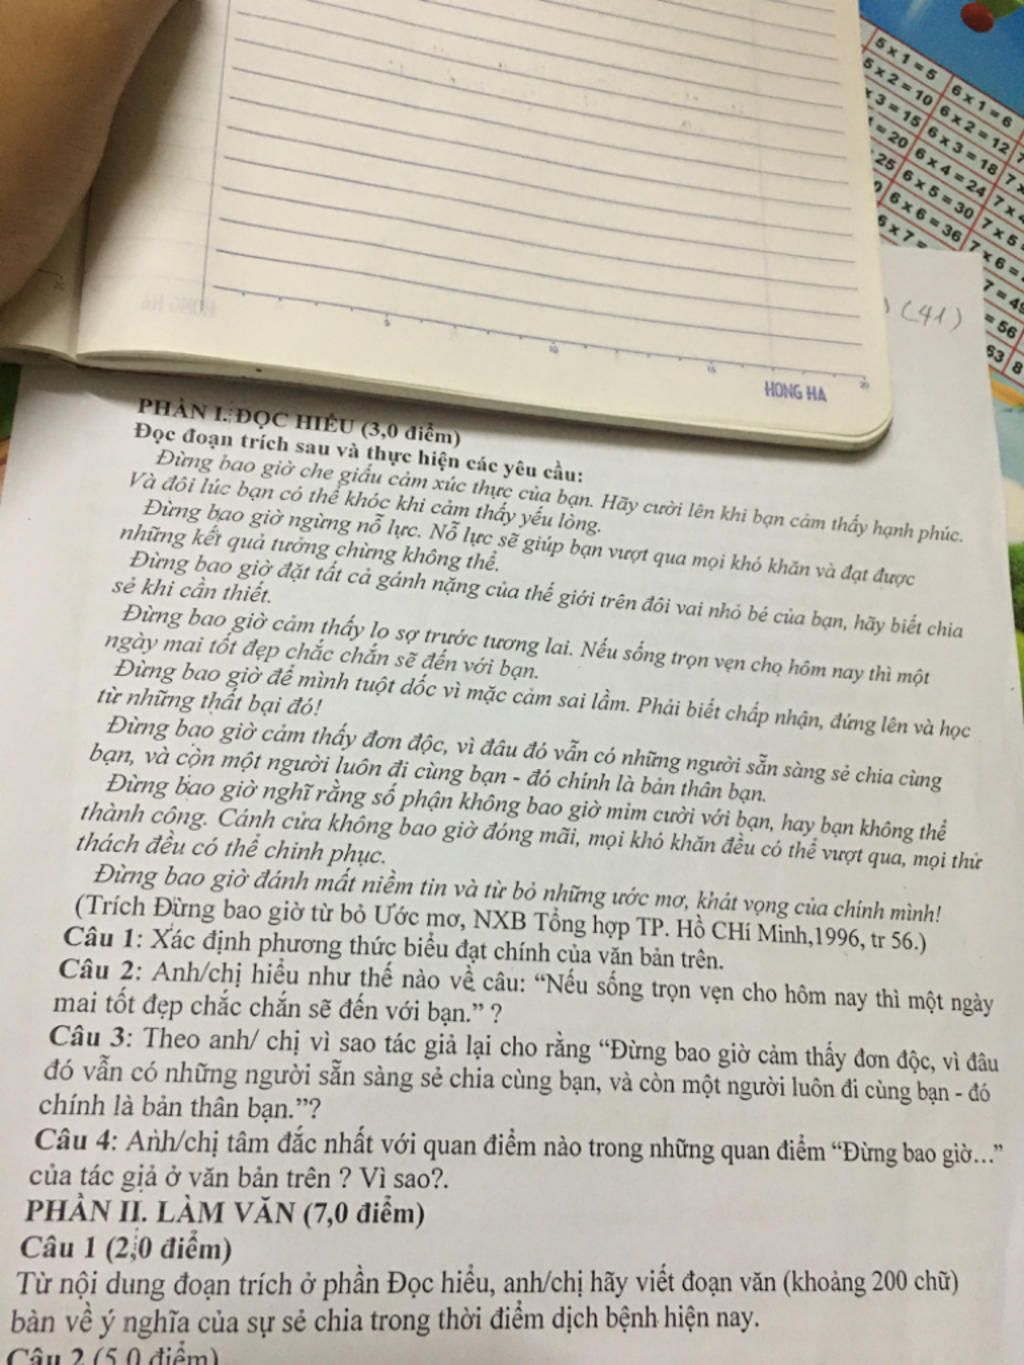 5 x 1 = 5 6 x 1 = 6
5 x 2 = 10 6 x 2 = 12 7
x 3 = 15 6 x 3 = 18 7 x
= 20 6 x 4 = 24 7 x 4
25 6 x 5 = 30 7 x 5 =
0 6 x 6 = 36 7 x 6 =
6 x 7 = 7 = 49
= 56
63 8
(41)
5 10 15 20
HONG HA
PHẦN I. ĐỌC HIỂU (3,0 điểm)
Đọc đoạn trích sau và thực hiện các yêu cầu:
Đừng bao giờ che giấu cảm xúc thực của bạn. Hãy cười lên khi bạn cảm thấy hạnh phúc.
Và đôi lúc bạn có thể khóc khi cảm thấy yếu lòng.
Đừng bao giờ ngừng nỗ lực. Nỗ lực sẽ giúp bạn vượt qua mọi khó khăn và đạt được
những kết quả tưởng chừng không thể.
Đừng bao giờ đặt tất cả gánh nặng của thế giới trên đôi vai nhỏ bé của bạn, hãy biết chia
sẻ khi cần thiết.
Đừng bao giờ cảm thấy lo sợ trước tương lai. Nếu sống trọn vẹn cho hôm nay thì một
ngày mai tốt đẹp chắc chắn sẽ đến với bạn.
Đừng bao giờ để mình tuột dốc vì mặc cảm sai lầm. Phải biết chấp nhận, đứng lên và học
từ những thất bại đó!
Đừng bao giờ cảm thấy đơn độc, vì đâu đó vẫn có những người sẵn sàng sẻ chia cùng
bạn, và còn một người luôn đi cùng bạn - đó chính là bản thân bạn.
Đừng bao giờ nghĩ rằng số phận không bao giờ mỉm cười với bạn, hay bạn không thể
thành công. Cánh cửa không bao giờ đóng mãi, mọi khó khăn đều có thể vượt qua, mọi thử
thách đều có thể chinh phục.
Đừng bao giờ đánh mất niềm tin và từ bỏ những ước mơ, khát vọng của chính mình!
(Trích Đừng bao giờ từ bỏ Ước mơ, NXB Tổng hợp TP. Hồ CHí Minh,1996, tr 56.)
Câu 1: Xác định phương thức biểu đạt chính của văn bản trên.
Câu 2: Anh/chị hiểu như thế nào về câu: “Nếu sống trọn vẹn cho hôm nay thì một ngày
mai tốt đẹp chắc chắn sẽ đến với bạn.” ?
Câu 3: Theo anh/ chị vì sao tác giả lại cho rằng “Đừng bao giờ cảm thấy đơn độc, vì đâu
đó vẫn có những người sẵn sàng sẻ chia cùng bạn, và còn một người luôn đi cùng bạn - đó
chính là bản thân bạn.”?
Câu 4: Anh/chị tâm đắc nhất với quan điểm nào trong những quan điểm “Đừng bao giờ...”
của tác giả ở văn bản trên ? Vì sao?.
PHẦN II. LÀM VĂN (7,0 điểm)
Câu 1 (2,0 điểm)
Từ nội dung đoạn trích ở phần Đọc hiểu, anh/chị hãy viết đoạn văn (khoảng 200 chữ)
bàn về ý nghĩa của sự sẻ chia trong thời điểm dịch bệnh hiện nay.
Câu 2 (5,0 điểm)